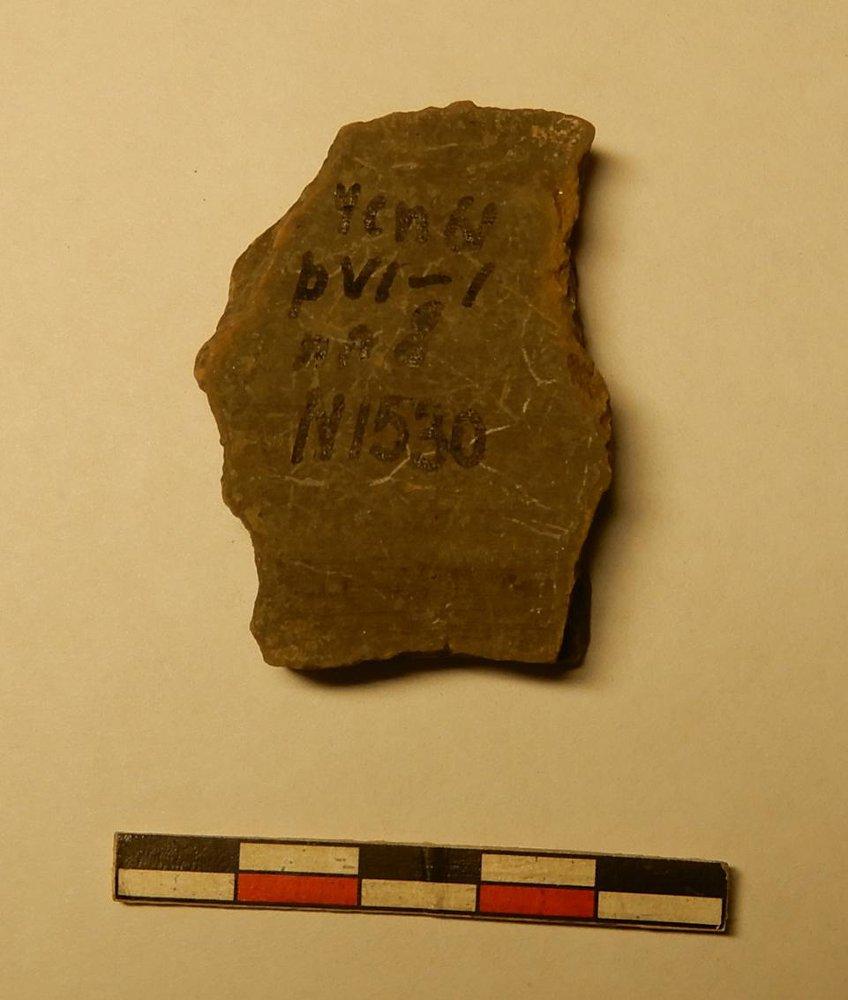 Усп 61
рVI-1
пл 8
N1530